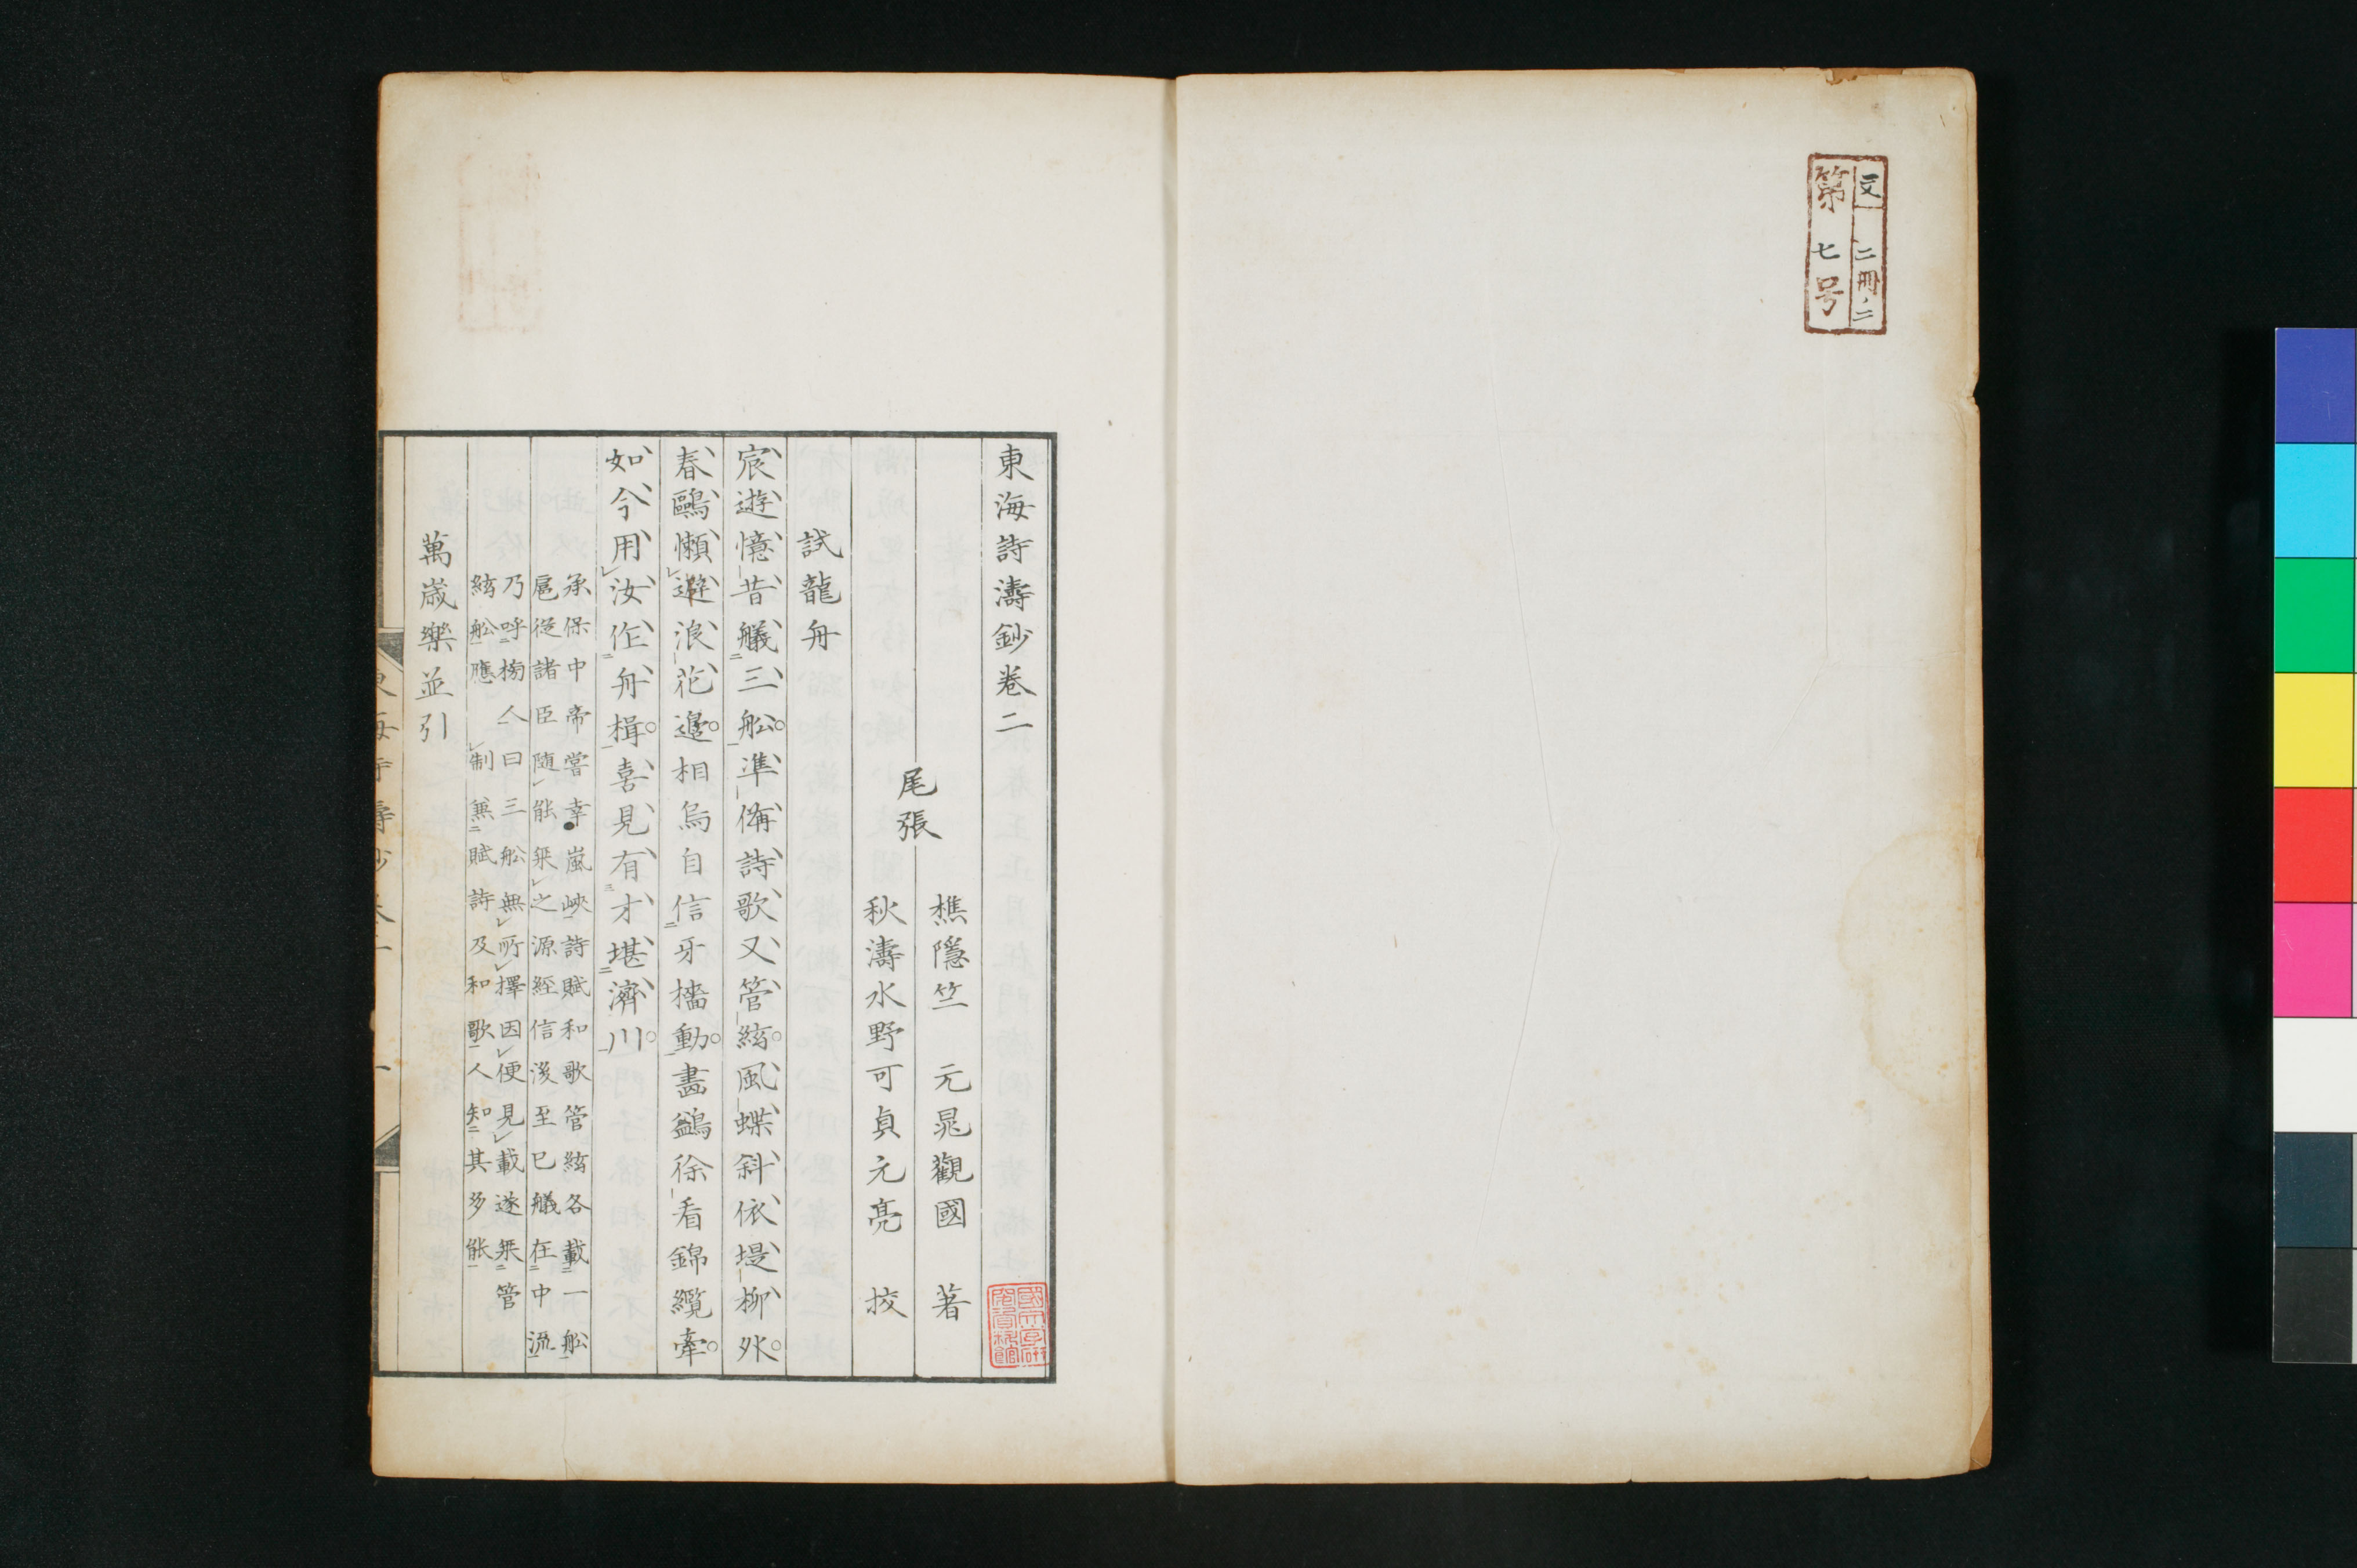 文 二冊ノ二
第七号
東海詩濤鈔卷二
尾張
樵隱竺 元晁觀國 著
秋濤水野可貞元亮 挍
試龍舟
宸遊憶昔艤三舩準備詩歌又管絃風蝶斜依堤柳外
春鷗懶避浪花邊相烏自信牙檣動畵鷁徐看錦纜牽
如今用汝作舟楫喜見有才堪濟川
承保中帝嘗幸嵐峽詩賦和歌管絃各載一舩
扈從諸臣隨能乘之源經信後至已艤在中流
乃呼榜人曰三舩無所擇因便見載遂乘管
絃舩應制兼賦詩及和歌人知其多能
萬歲樂並引